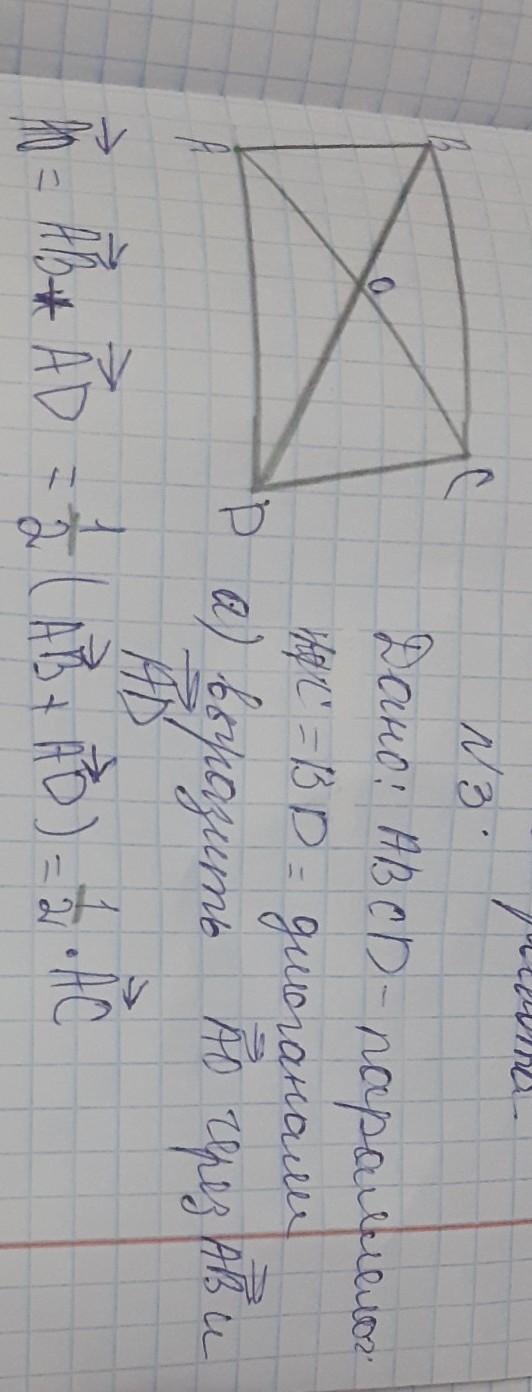 N 3.
Дано: ABCD - параллелог.
AC = BD = диагонали
B
C
O
A
D
а) выразить AO через AB и
AD
AO = AB + AD = 1/2 (AB + AD) = 1/2 · AC